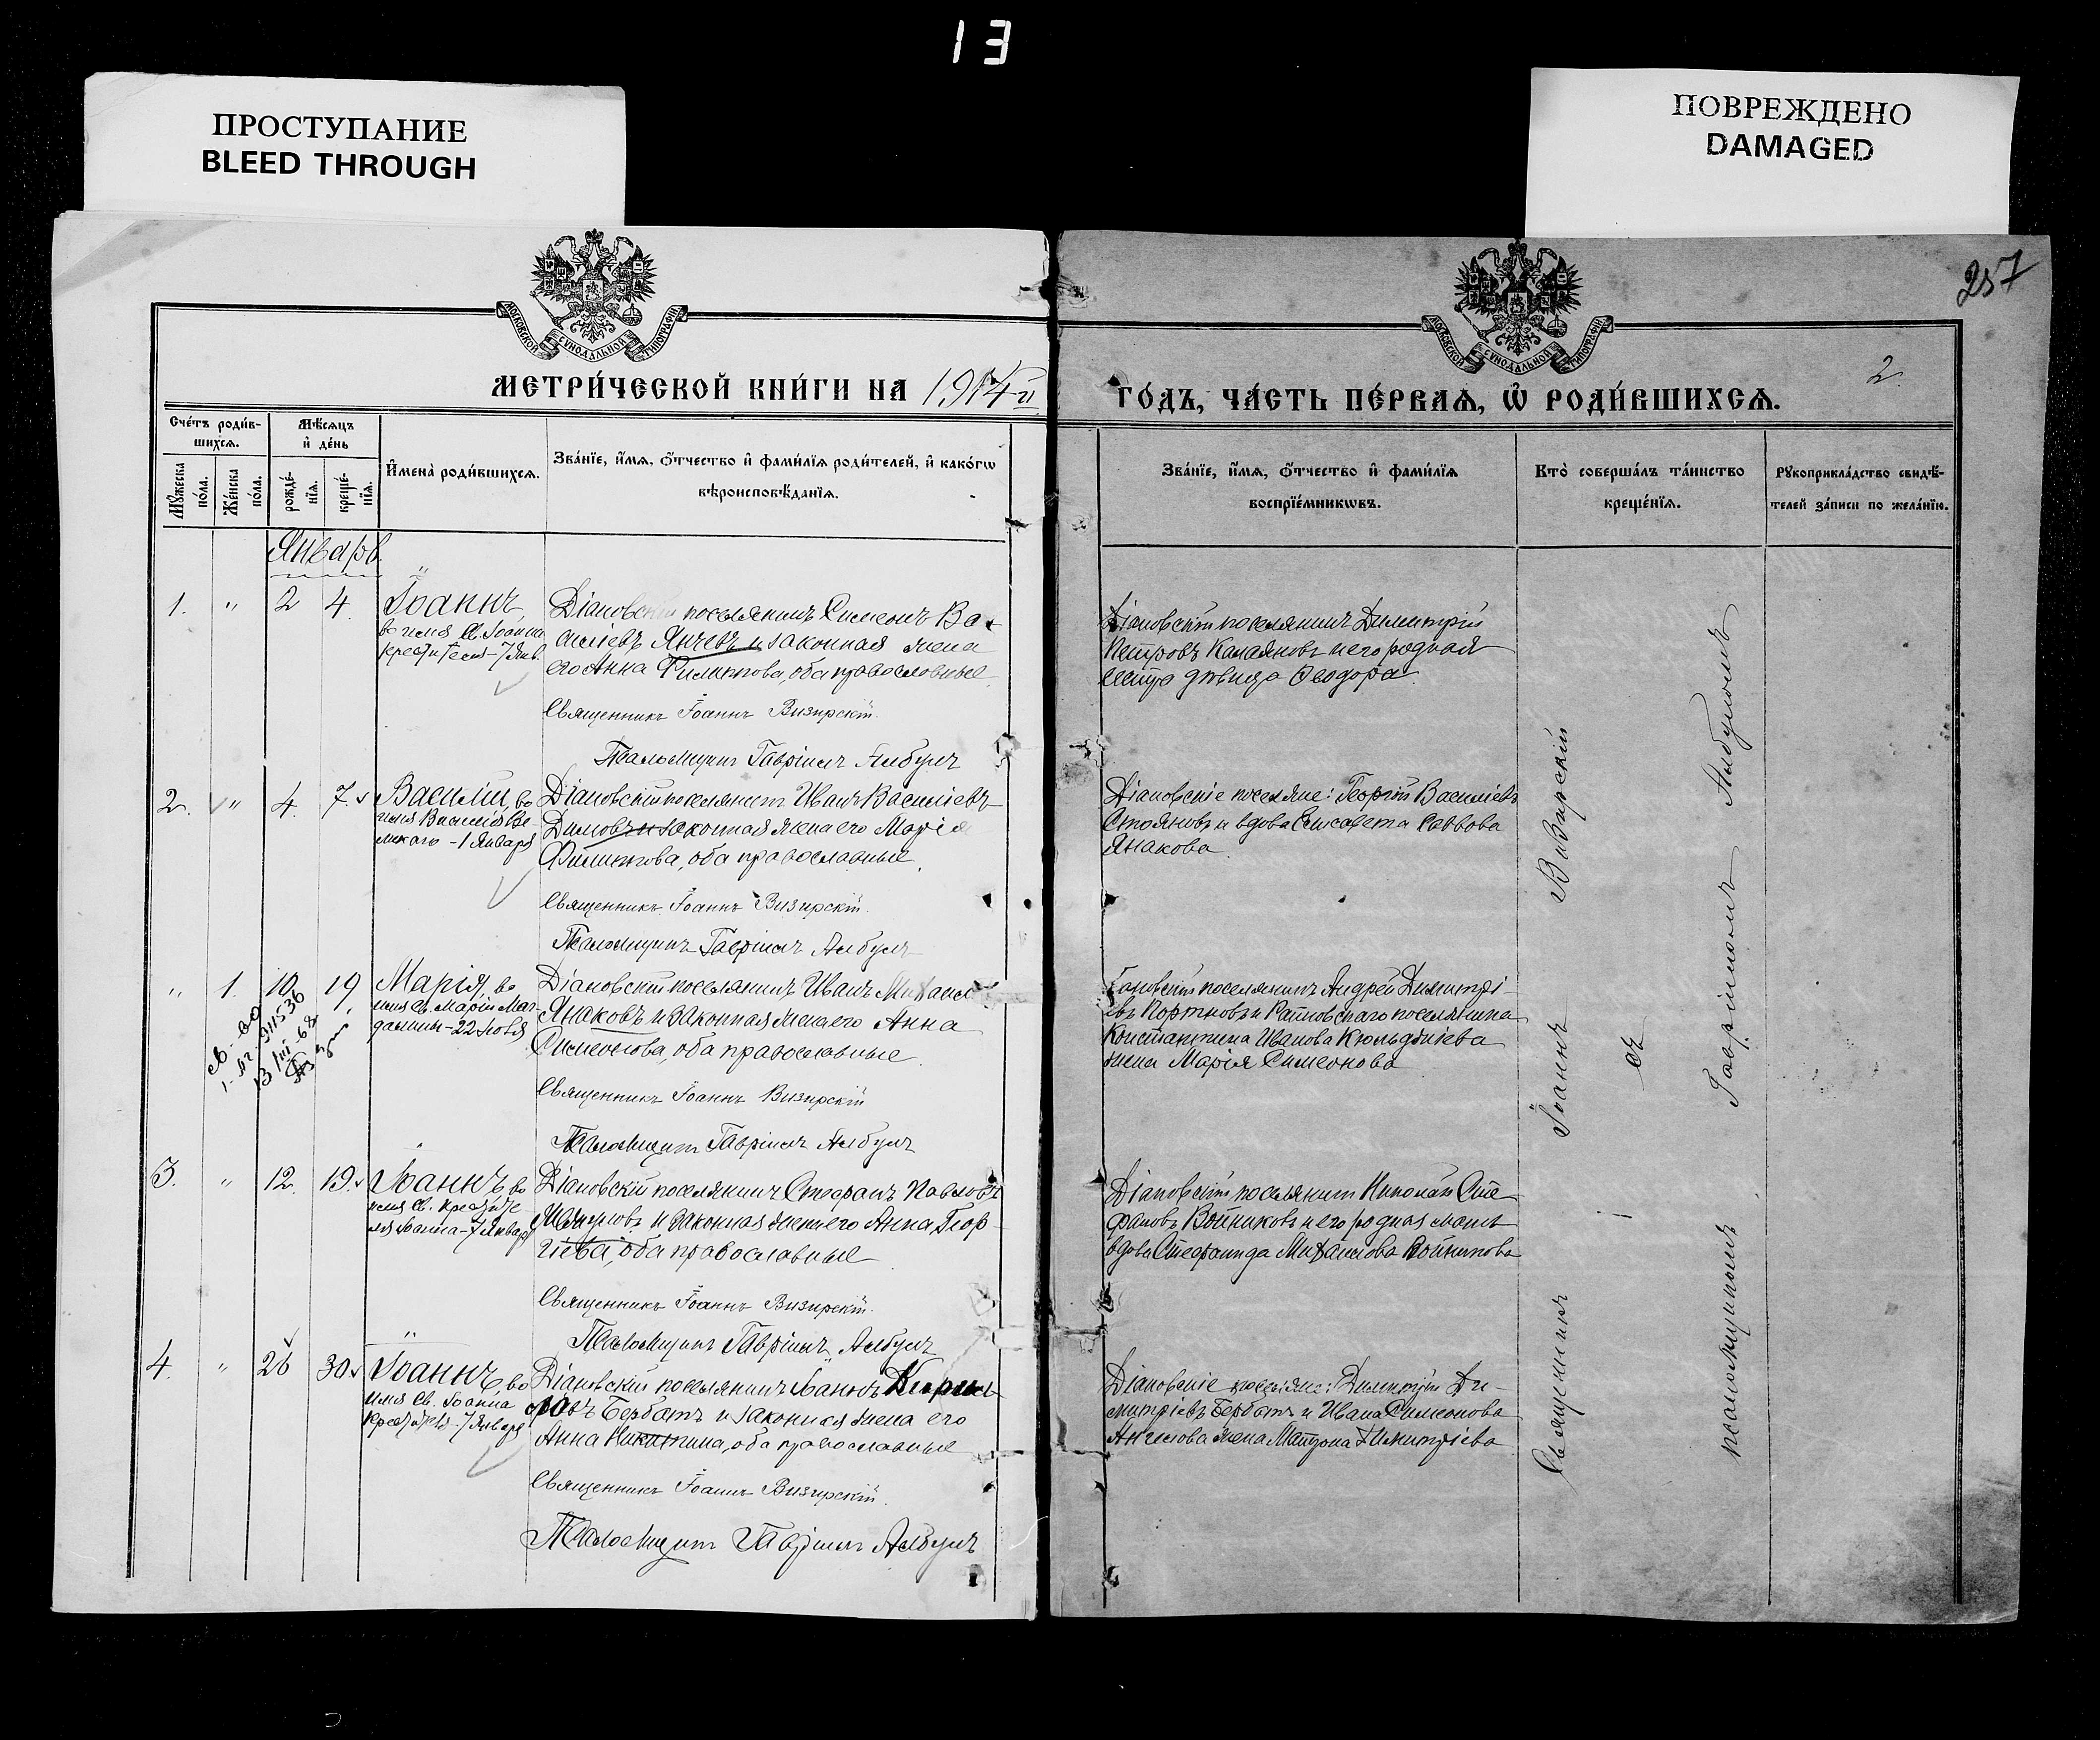 13
ПРОСТУПАНИЕ
BLEED THROUGH
ПОВРЕЖДЕНО
DAMAGED
257
МОСКОВСКОЙ СѴНОДАЛЬНОЙ ТИПОГРАФІИ
МОСКОВСКОЙ СѴНОДАЛЬНОЙ ТИПОГРАФІИ
МЕТРИ́ЧЕСКОЙ КНИ́ГИ НА 1914 г.
ГО́ДЪ, ЧА́СТЬ ПЕ́РВАѦ, Ѽ РОДИ́ВШИХСѦ.
2.
Сче́тъ роди́в-
шихсѧ.
Мѣ́сѧцъ
и҆ де́нь
Мꙋ́жеска
по́ла.
Же́нска
по́ла.
рожде́-
нїѧ.
креще́-
нїѧ.
И҆мена̀ роди́вшихсѧ.
Зва́нїе, и҆́мѧ, ѻ҆́тчество и҆ фами́лїѧ роди́телей, и҆ како́гѡ
вѣроисповѣ́данїѧ.
Зва́нїе, и҆́мѧ, ѻ҆́тчество и҆ фами́лїѧ
воспрїе́мникѡвъ.
Кто̀ соверша́лъ та́инство
креще́нїѧ.
Рꙋкоприкла́дство свидѣ́-
телей за́писи по жела́нїю.
Январь
1. " 2 4
Іоаннъ
во имя Св. Іоанна
Крестителя - 7 Янв.
Діановскій поселянинъ Симеонъ Ва-
силіевъ Янчевъ и законная жена
его Анна Филиппова, оба православные
Священникъ Іоаннъ Визирскій.
Псаломщикъ Гавріилъ Албулъ
Діановскій поселянинъ Димитрій
Петровъ Калаяновъ и его родная
сестра девица Ѳеодора.
2. " 4. 7.
Василій, во
имя Василія Ве-
ликаго - 1 Января
Діановскій поселянинъ Иванъ Василіевъ
Димовъ и законная жена его Марія
Филиппова, оба православные.
Священникъ Іоаннъ Визирскій.
Псаломщикъ Гавріилъ Албулъ
Діановскіе поселяне: Георгій Василіевъ
Стояновъ и вдова Елисавета Саввова
Янакова.
" 1. 10. 19
Марія, во
имя Св. Маріи Маг-
далины - 22 Іюля
Діановскій поселянинъ Иванъ Михаил.
Янаковъ и законная жена его Анна
Симеонова, оба православные.
Священникъ Іоаннъ Визирскій
Псаломщикъ Гавріилъ Албулъ
поселянинъ Андрей Димитрі-
евъ Портновъ и поселянина
Константина Иванова Кюльджіева
жена Марія Симеонова
3. " 12. 19.
Іоаннъ, во
имя Св. Крестите-
ля Іоанна - 7 Январ
Діановскій поселянинъ Стефанъ Павловъ
и законная жена его Анна Геор-
гіева, оба православные
Священникъ Іоаннъ Визирскій.
Псаломщикъ Гавріилъ Албулъ
Діановскій поселянинъ Николай Сте-
фановъ Войниковъ и его родная мать
вдова Стефанида Михайлова Войникова
4. " 26 30
Іоаннъ, во
имя Св. Іоанна
Крестителя - 7 Января
Діановскій поселянинъ Іоаннъ Кирил-
ловъ Бербатъ и законная жена его
Анна Никитина, оба православные
Священникъ Іоаннъ Визирскій.
Псаломщикъ Гавріилъ Албулъ
Діановскіе поселяне: Димитрій Ди-
митріевъ Бербатъ и Ивана Симеонова
Ангелова жена Матрона Димитріева
Священникъ Іоаннъ Визирскій
съ
псаломщикомъ Гавріиломъ Албуломъ